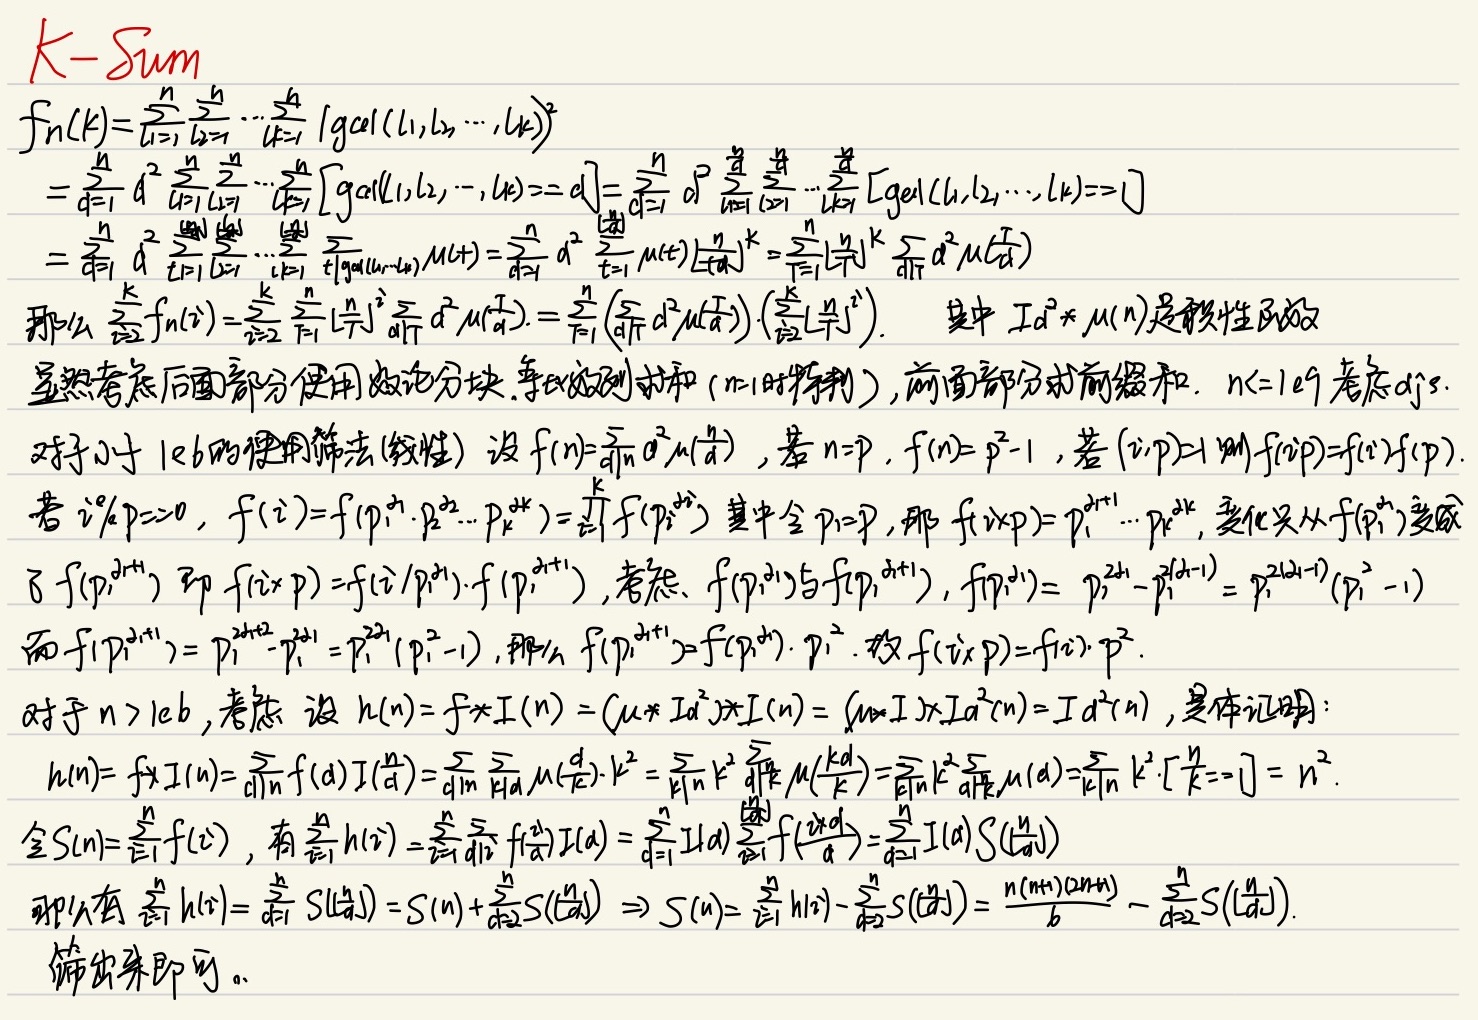 K-Sum
fn(k)=∑_{l1=1}^{n}∑_{l2=1}^{n}…∑_{lk=1}^{n}(gcd(l1,l2,…,lk))²
=∑_{d=1}^{n} d² ∑_{l1=1}^{n}∑_{l2=1}^{n}…∑_{lk=1}^{n}[gcd(l1,l2,…,lk)==d]=∑_{d=1}^{n} d² ∑_{l1=1}^{n/d}∑_{l2=1}^{n/d}…∑_{lk=1}^{n/d}[gcd(l1,l2,…,lk)==1]
=∑_{d=1}^{n} d² ∑_{l1=1}^{⌊n/d⌋}∑_{l2=1}^{⌊n/d⌋}…∑_{lk=1}^{⌊n/d⌋}∑_{t|gcd(l1,…,lk)} μ(t)=∑_{d=1}^{n} d² ∑_{t=1}^{⌊n/d⌋} μ(t)⌊n/td⌋^k=∑_{T=1}^{n}⌊n/T⌋^k ∑_{d|T} d²μ(T/d)
那么 ∑_{i=2}^{k} fn(i)=∑_{i=2}^{k}∑_{T=1}^{n}⌊n/T⌋^i ∑_{d|T} d²μ(T/d).=∑_{T=1}^{n}(∑_{d|T} d²μ(T/d))·(∑_{i=2}^{k}⌊n/T⌋^i). 其中 Id²*μ(n)是积性函数
显然考虑后面部分使用数论分块.等比数列求和(n=1时特判),前面部分求前缀和. n<=1e9考虑djs.
对于小于1e6的使用筛法(线性) 设f(n)=∑_{d|n} d²μ(n/d),若n=p,f(n)=p²-1,若(i,p)=1则f(ip)=f(i)·f(p).
若i%p==0, f(i)=f(p1^α1·p2^α2…pk^αk)=∏_{i=1}^{k} f(pi^αi) 其中令p1=p,那f(i×p)=p1^{α1+1}…pk^αk,变化只从f(p1^α1)变成
了f(p1^{α1+1}) 即f(i×p)=f(i/p1^α1)·f(p1^{α1+1}),考虑、f(p1^α1)与f(p1^{α1+1}),f(p1^α1)=p1^{2α1}-p1^{2(α1-1)}=p1^{2(α1-1)}(p1²-1)
而f(p1^{α1+1})=p1^{2α1+2}-p1^{2α1}=p1^{2α1}(p1²-1),那么f(p1^{α1+1})=f(p1^α1)·p1².故f(i×p)=f(i)·p².
对于n>1e6,考虑 设h(n)=f*I(n)=(μ*Id²)*I(n)=(μ*I)*Id²(n)=Id²(n),具体证明:
h(n)=f*I(n)=∑_{d|n} f(d)I(n/d)=∑_{d|n}∑_{k|d} μ(d/k)·k²=∑_{k|n} k² ∑_{d|n/k} μ(kd/k)=∑_{k|n} k² ∑_{d|n/k} μ(d)=∑_{k|n} k²·[n/k==1]=n².
令S(n)=∑_{i=1}^{n} f(i),有∑_{i=1}^{n} h(i)=∑_{i=1}^{n}∑_{d|i} f(i/d)I(d)=∑_{d=1}^{n} I(d)∑_{i=1}^{⌊n/d⌋} f(i×d/d)=∑_{d=1}^{n} I(d)S(⌊n/d⌋)
那么有 ∑_{i=1}^{n} h(i)=∑_{d=1}^{n} S(⌊n/d⌋)=S(n)+∑_{d=2}^{n} S(⌊n/d⌋) ⇒ S(n)=∑_{i=1}^{n} h(i)-∑_{d=2}^{n} S(⌊n/d⌋)=n(n+1)(2n+1)/6-∑_{d=2}^{n} S(⌊n/d⌋).
筛出来即可。